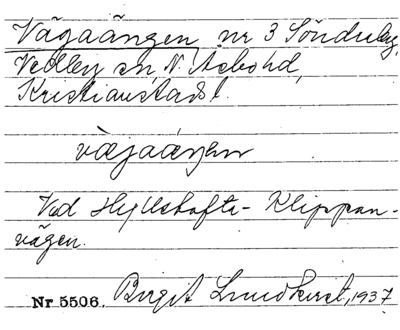 Vägaängen nr 3 Sönduleg,
Vedby sn, N. Åsbohd,
Kristianstadsl.
väjaäŋen
Ved Hyllstofta- Klippan-
vägen.
Nr 5506. Birgit Lundkvist, 1937